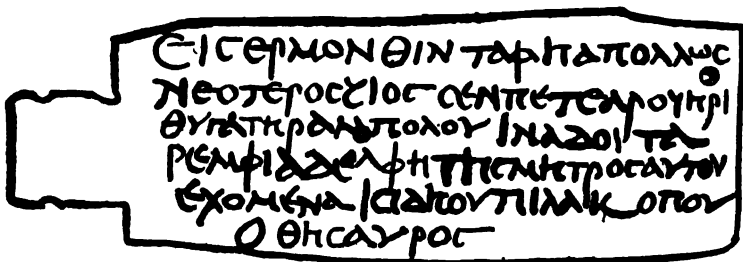 ΕΙϹ ΕΡΜΟΝΘΙΝ ΤΑΦΗ ΑΠΟΛΛωϹ
ΝΕΟΤΕΡΟϹ ΥΙΟϹ ϹΕΝΠΕΤΕΑΡΟΥΗΡΙ
ΘΥΓΑΤΗΡ ΙΝΑ ΔΟΙ ΤΑ
ΡΕΜΦΙ ΑΔΕΛΦΗ ΤΗϹ ΜΗΤΡΟϹ ΑΥΤΟΥ
ΕΧΟΜΕΝΑ ΟΠΟΥ
Ο ΘΗϹΑΥΡΟϹ